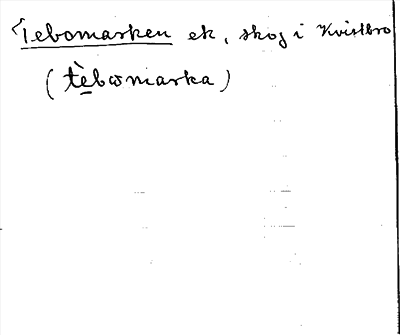 Tebomarken ek, skog i Kvistbro
(tèbωmarka)